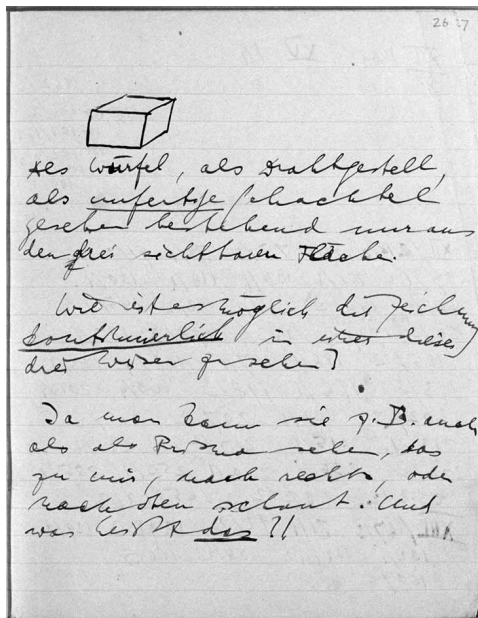 26 27
Als Würfel, als Drahtgestell,
als unfertige Schachtel
gesehen bestehend nur aus
den drei sichtbaren Fläche.
Wie ist es möglich die Zeichnung
kontinuierlich in einer dieser
drei Weisen zu sehen?
Ja man kann sie z.B. auch
als als Prisma sehen, das
zu mir, nach rechts, oder
nach oben schaut. Und
was heißt das?!